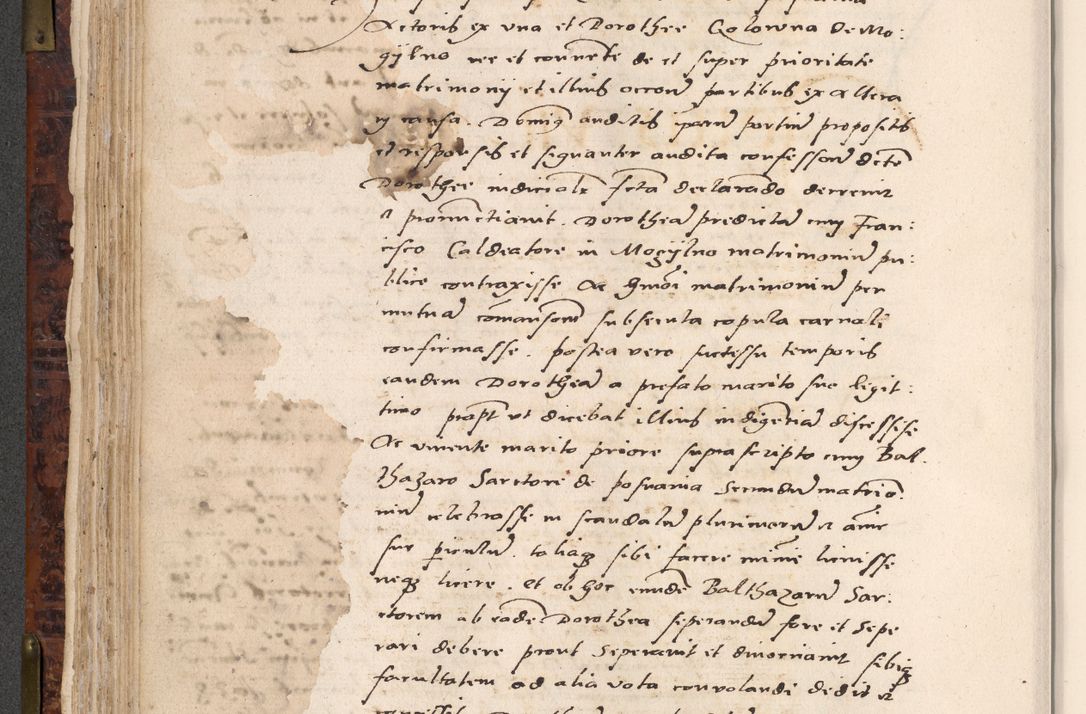 Actoris ex una et Dorothee Golowna de Mo:
gÿlno ree et convente de et super prioritate
matrimonij et illius occone partibus ex altera
in causa. Dominus auditis ipsarum partium propositis
et responsis et signanter audita confessione dicte
Dorothee indicialr facta declarando decrevit
et pronunctiavit. Dorotheam predictam cum Fran:
cisco Caldeatore in Mogÿlno matrimonium pu:
blice contraxisse Ac huiusmodi matrimonium per
mutuam comansionem subsecuta copula carnali
confirmasse. postea vero successu temporis
eandem Dorotheam a prefato marito suo legit:
timo propter ut dicebat illius indigentiam discessisse
Ac vivente marito priore suprascripto cum Bal:
thazaro Sarctore de posnania Secundum matrimo:
nium celebrasse in scandalum plurimorum et anime
sue periculum taliaque sibi facere minime licuisse
neque licere. Et ob hoc eundem Balthazarum Sar:
ctorem ab eadem Dorothea seperandum fore et Sepe
rari debere prout Seperavit et divorciavit sibique
facultatem ad alia vota convolandi dedit et